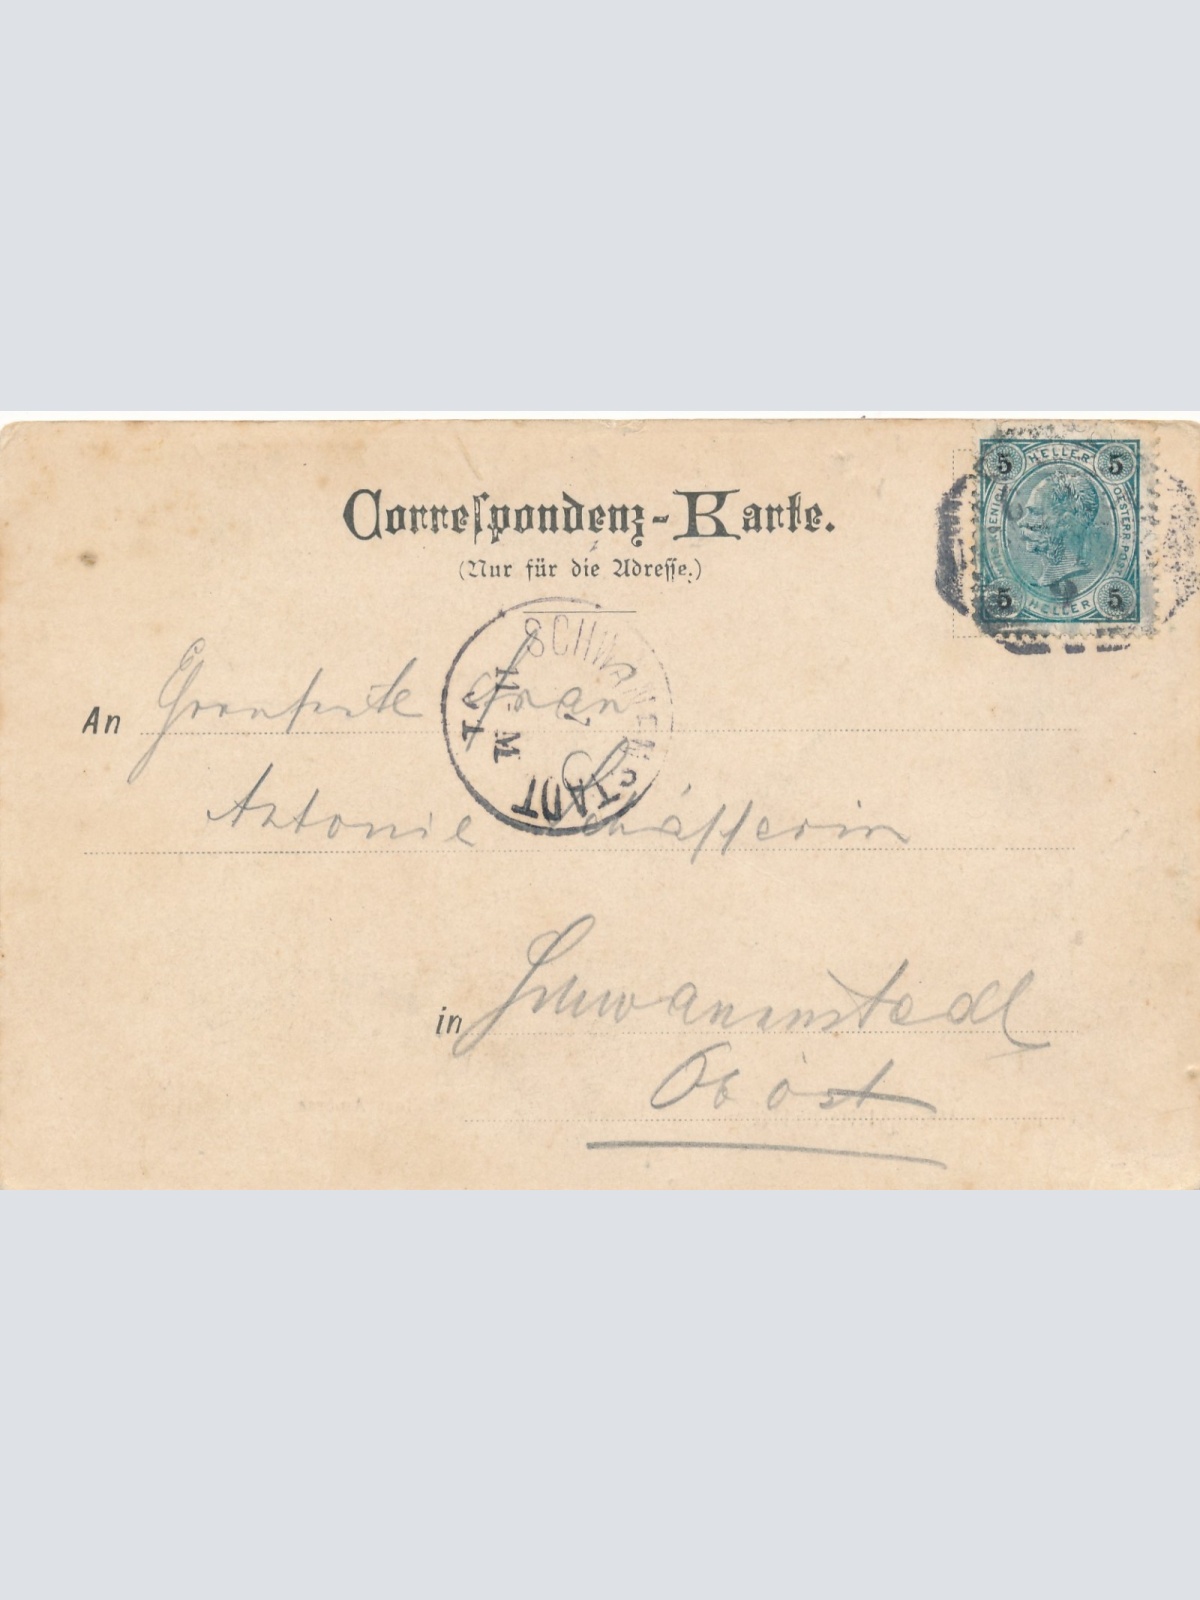 Correspondenz-Karte.
(Nur für die Adresse.)
5 HELLER 5
OESTERR. POST
5 HELLER 5
SCHWANENSTADT
An Frau
Antonie Schäfferin
in Schwanenstadl
Ob öst